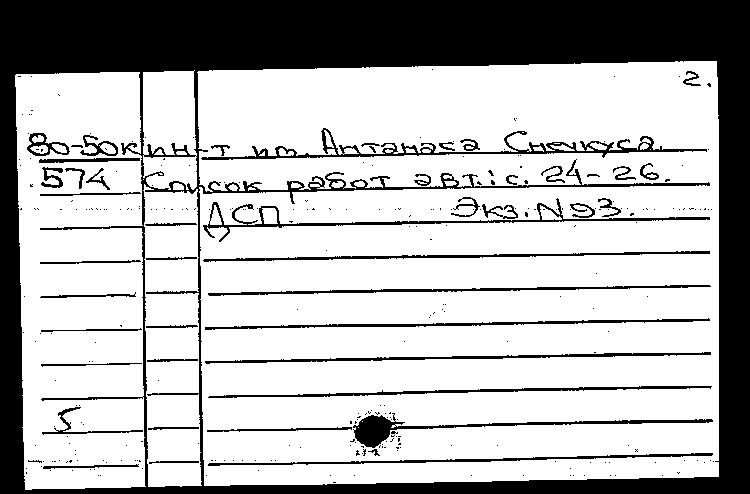 2.
80-50к ин-т им. Антанаса Снечкуса.
574 Список работ авт.: с. 24-26.
ДСП Экз. N 93.
5